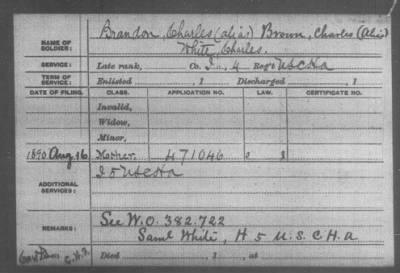 NAME OF SOLDIER: Brandon, Charles (alias) Brown, Charles (Alias)
White, Charles.
SERVICE: Late rank, Co. I, 4 Reg't U S C H a
TERM OF SERVICE: Enlisted , 1 Discharged , 1
DATE OF FILING. CLASS. APPLICATION NO. LAW. CERTIFICATE NO.
Invalid,
Widow,
Minor,
1890 Aug 16 Mother. 471046
ADDITIONAL SERVICES: I 5 U S C H a
REMARKS: See W.O. 382.722
Saml White, H 5 U.S.C.H.a
Died , 1 , at